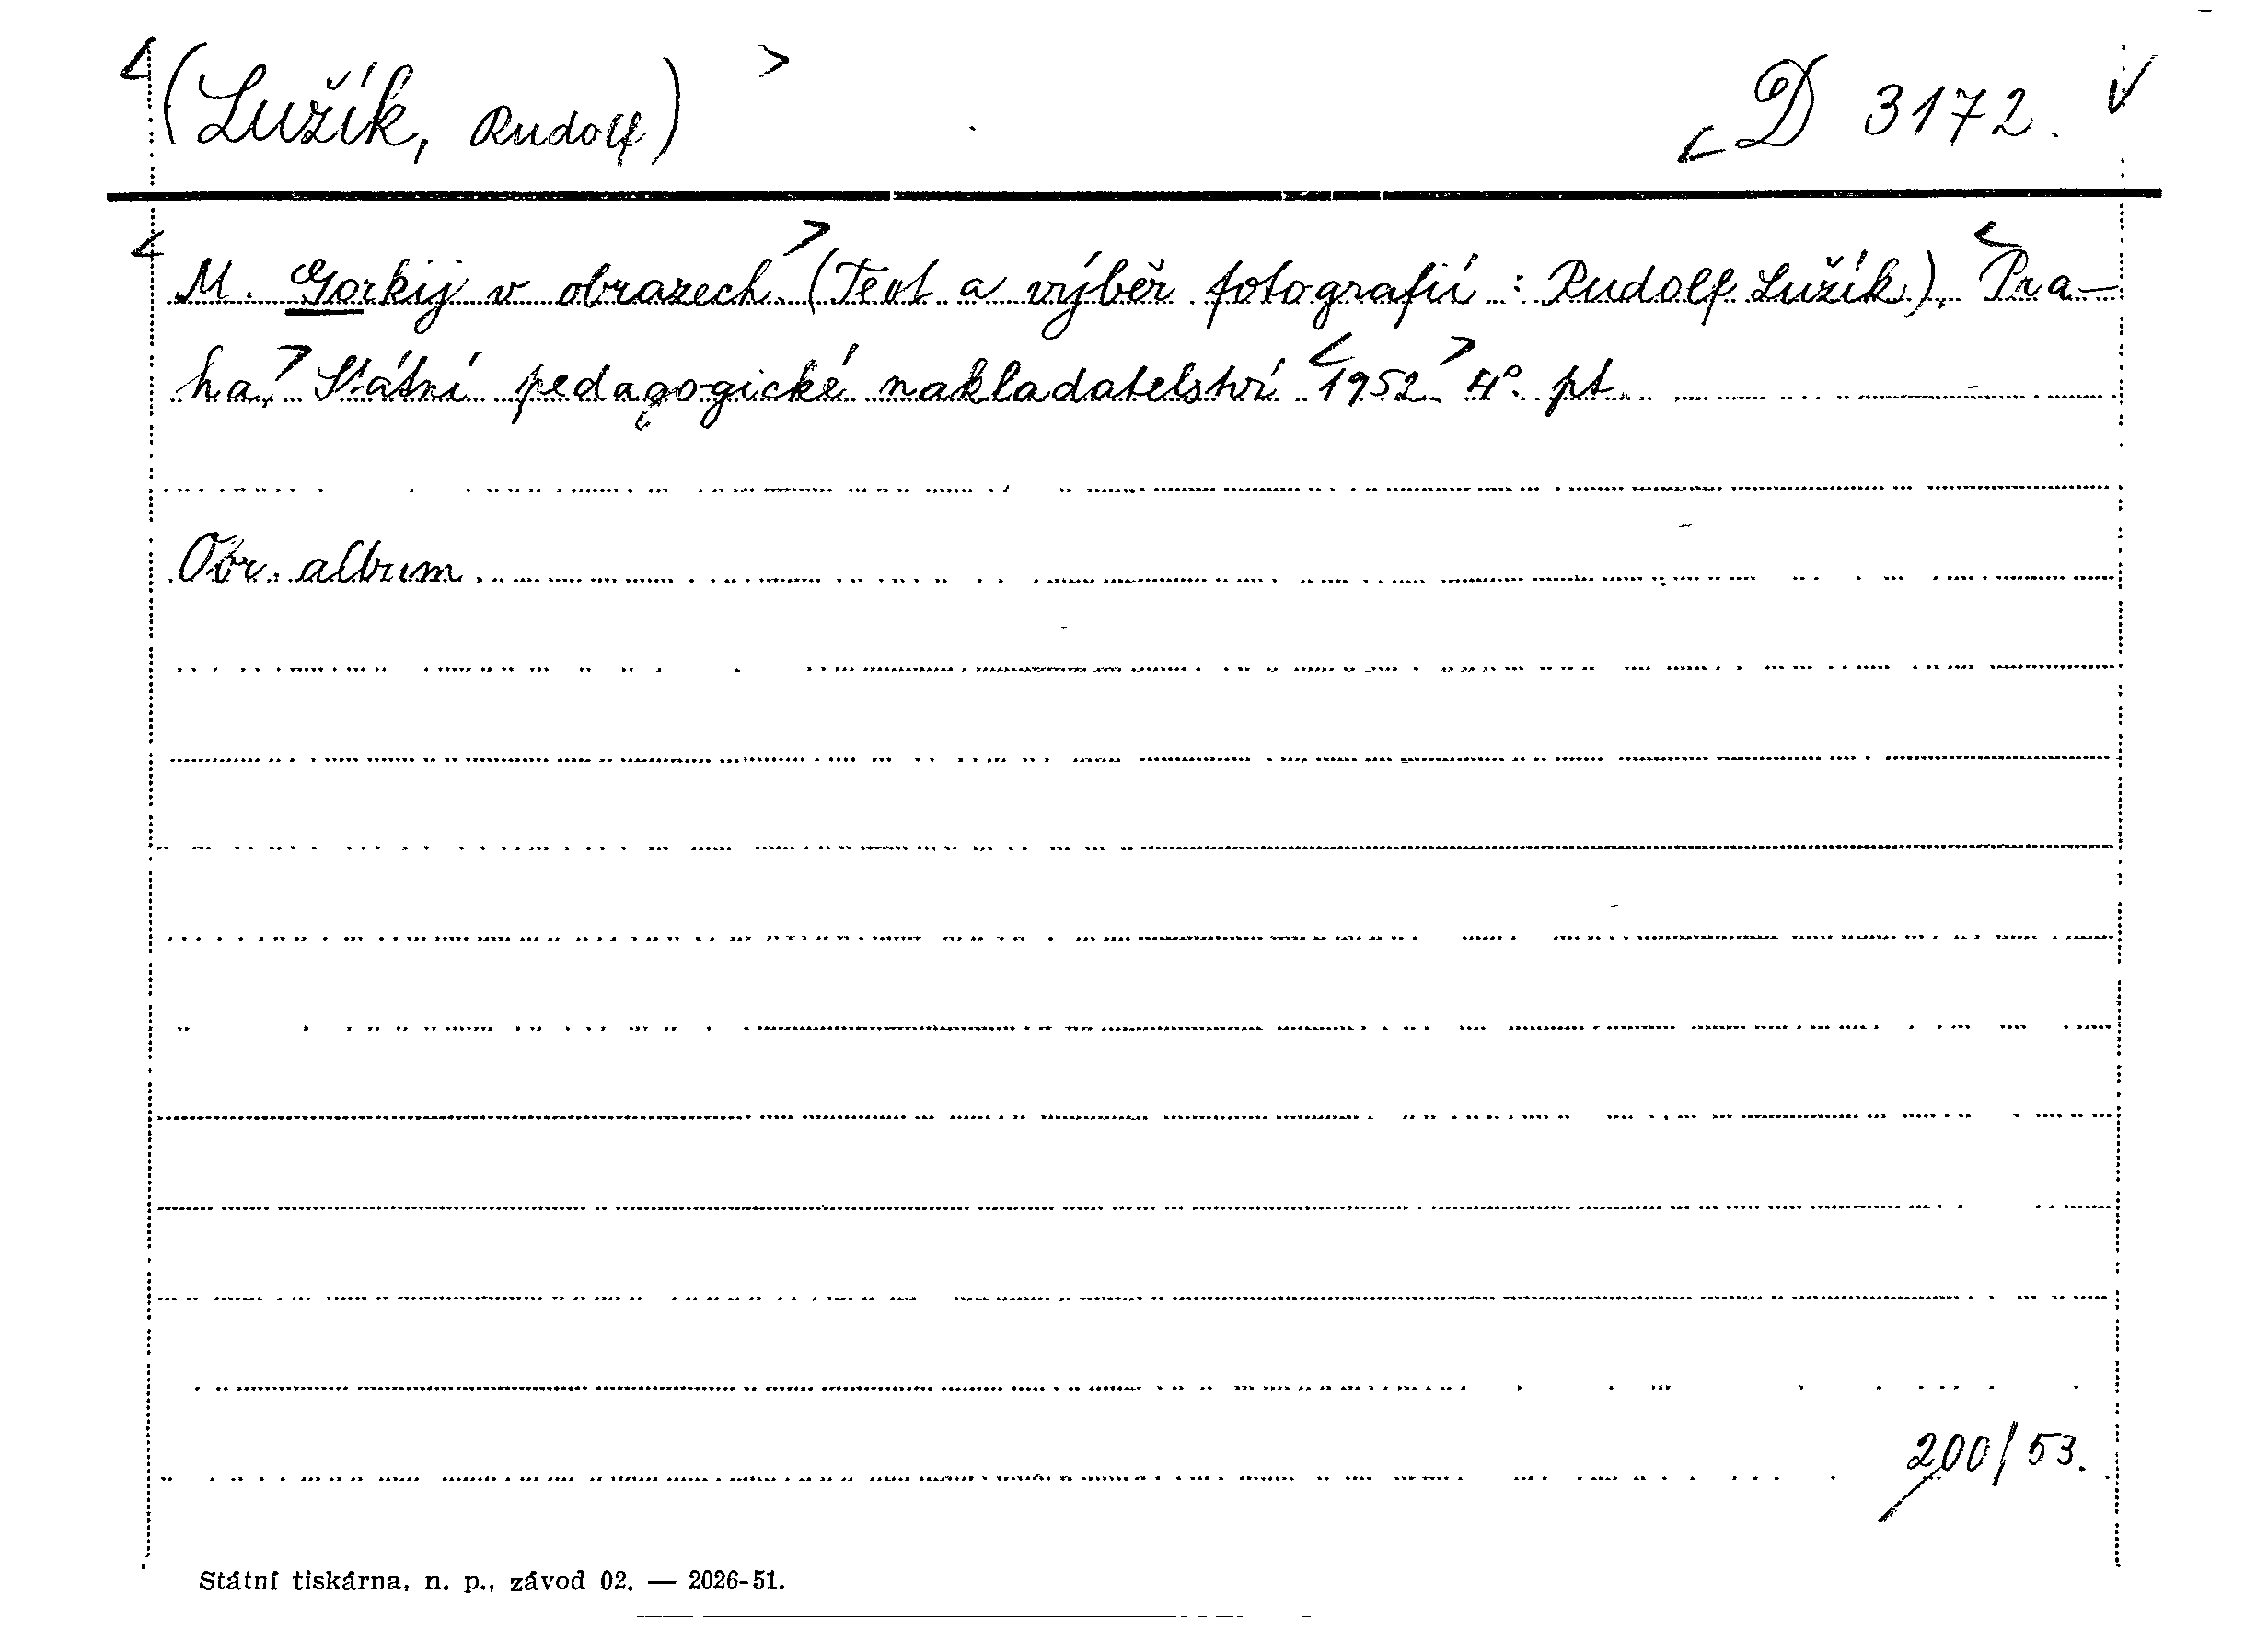 (Lužík, Rudolf) D 3172.
M. Gorkij v obrazech. (Text a výběr fotografií: Rudolf Lužík). Pra-
ha, Státní pedagogické nakladatelství 1952. 4°. pt.
Obr. album.
200/53.
Státní tiskárna, n. p., závod 02. — 2026-51.